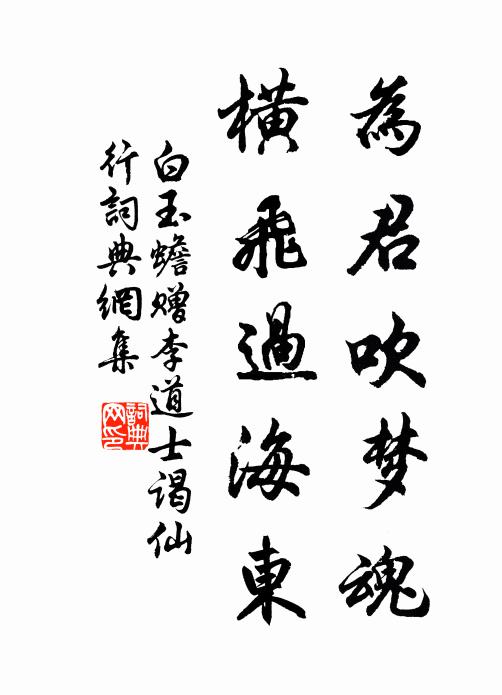 為君吹梦魂
橫飛過海東
白玉蟾赠李道士谒仙
行詞典網集
詞典
网印